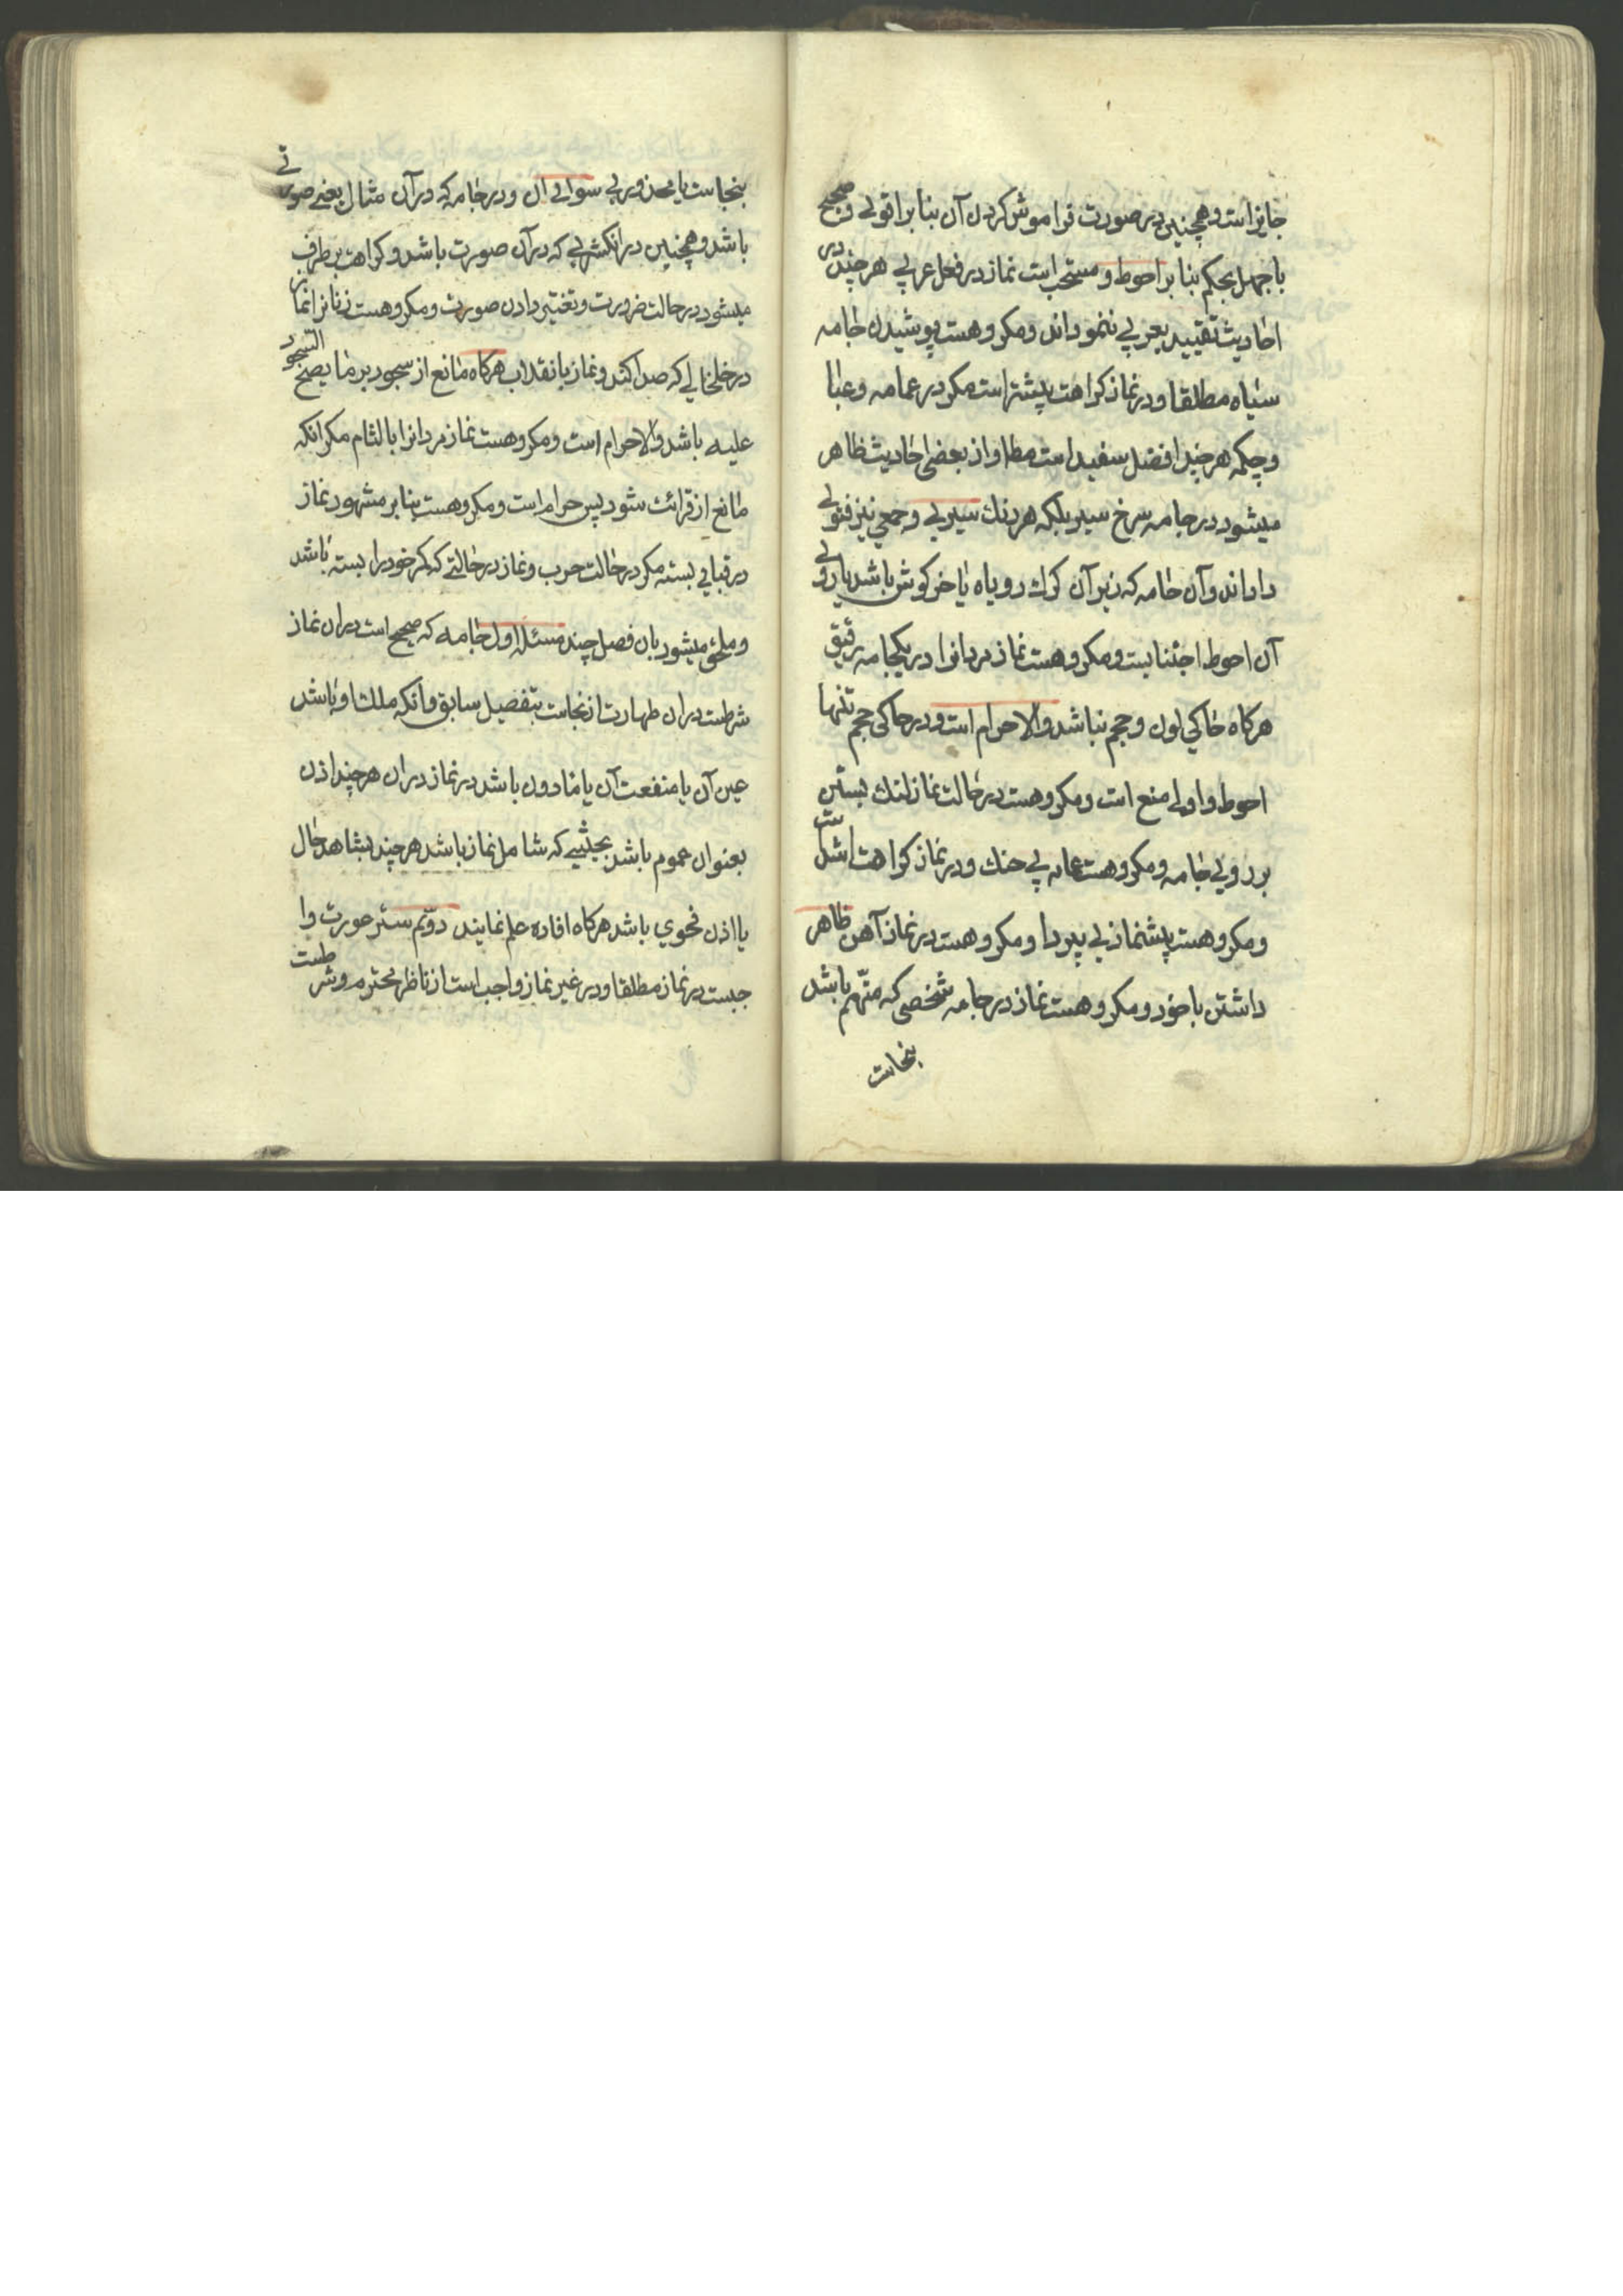 جایز است و همچنین در صورت فراموش کردن آن بنا بر اقوی و صحیح
با جهل بحکم بنا بر احوط و مستحب است نماز در نعل عربی هر چند در
احادیث تقیید بعربی ننموداند و مکروهست پوشیدن جامه
سیاه مطلقا و در نماز کراهت بیشتر است مکر در عمامه و عبا
و چکمه هر چند افضل سفید است مطلقا و از بعضی احادیث ظاهر
میشود در جامه سرخ سیر بلکه هر رنك سیری و جمعی نیز فتوی
داداند و آن جامه که زیر آن کرك روباه یا خرکوش باشد یا روی
آن احوط اجتنابست و مکروهست نماز مردانرا در یکجامه رقیق
هرکاه حاکی لون و حجم نباشد و الا حرام است و در حاکی حجم تنها
احوط و اولی منع است و مکروهست در حالت نماز لنك بستن
بر روی جامه و مکروهست عمامه بی حنك و در نماز کراهت اشد است
و مکروهست پیشنماز بی بی ردا و مکروهست در نماز آهن ظاهر
داشتن با خود و مکروهست نماز در جامه شخصی که متهم باشد
بنجاست
بنجاست یا محذوری سوای آن و در جامه که در آن مثال یعنی صورتی
باشد و همچنین در انکشتری که در آن صورت باشد و کراهت بر طرف
میشود در حالت ضرورت و تغییر دادن صورت و مکروهست زنانرا نماز
در خلخالی که صدا کند و نماز با نقاب هرکاه مانع از سجود بر ما یصح السجود
علیه باشد و الا حرام است و مکروهست نماز مردانرا با لثام مکر انکه
مانع از قرائت شود پس حرام است و مکروهست بنا بر مشهور نماز
در قبای بسته مکر در حالت حرب و نماز در حالتی که کمر خود را بسته باشد
و ملحق میشود بان فصل چند مسئله اول جامه که صحیح است در ان نماز
شرطست در ان طهارت از نجاست بتفصیل سابق و انکه ملك او باشد
عین آن یا منفعت آن یا ماذون باشد در نماز در ان هر چند اذن
بعنوان عموم باشد بحیثیی که شامل نماز باشد هر چند بشاهد حال
یا اذن فحوی باشد هرکاه افاده علم نمایند دوّم ستر عورت وا
جبست در نماز مطلقا و در غیر نماز واجب است از ناظر محترم و شرطست